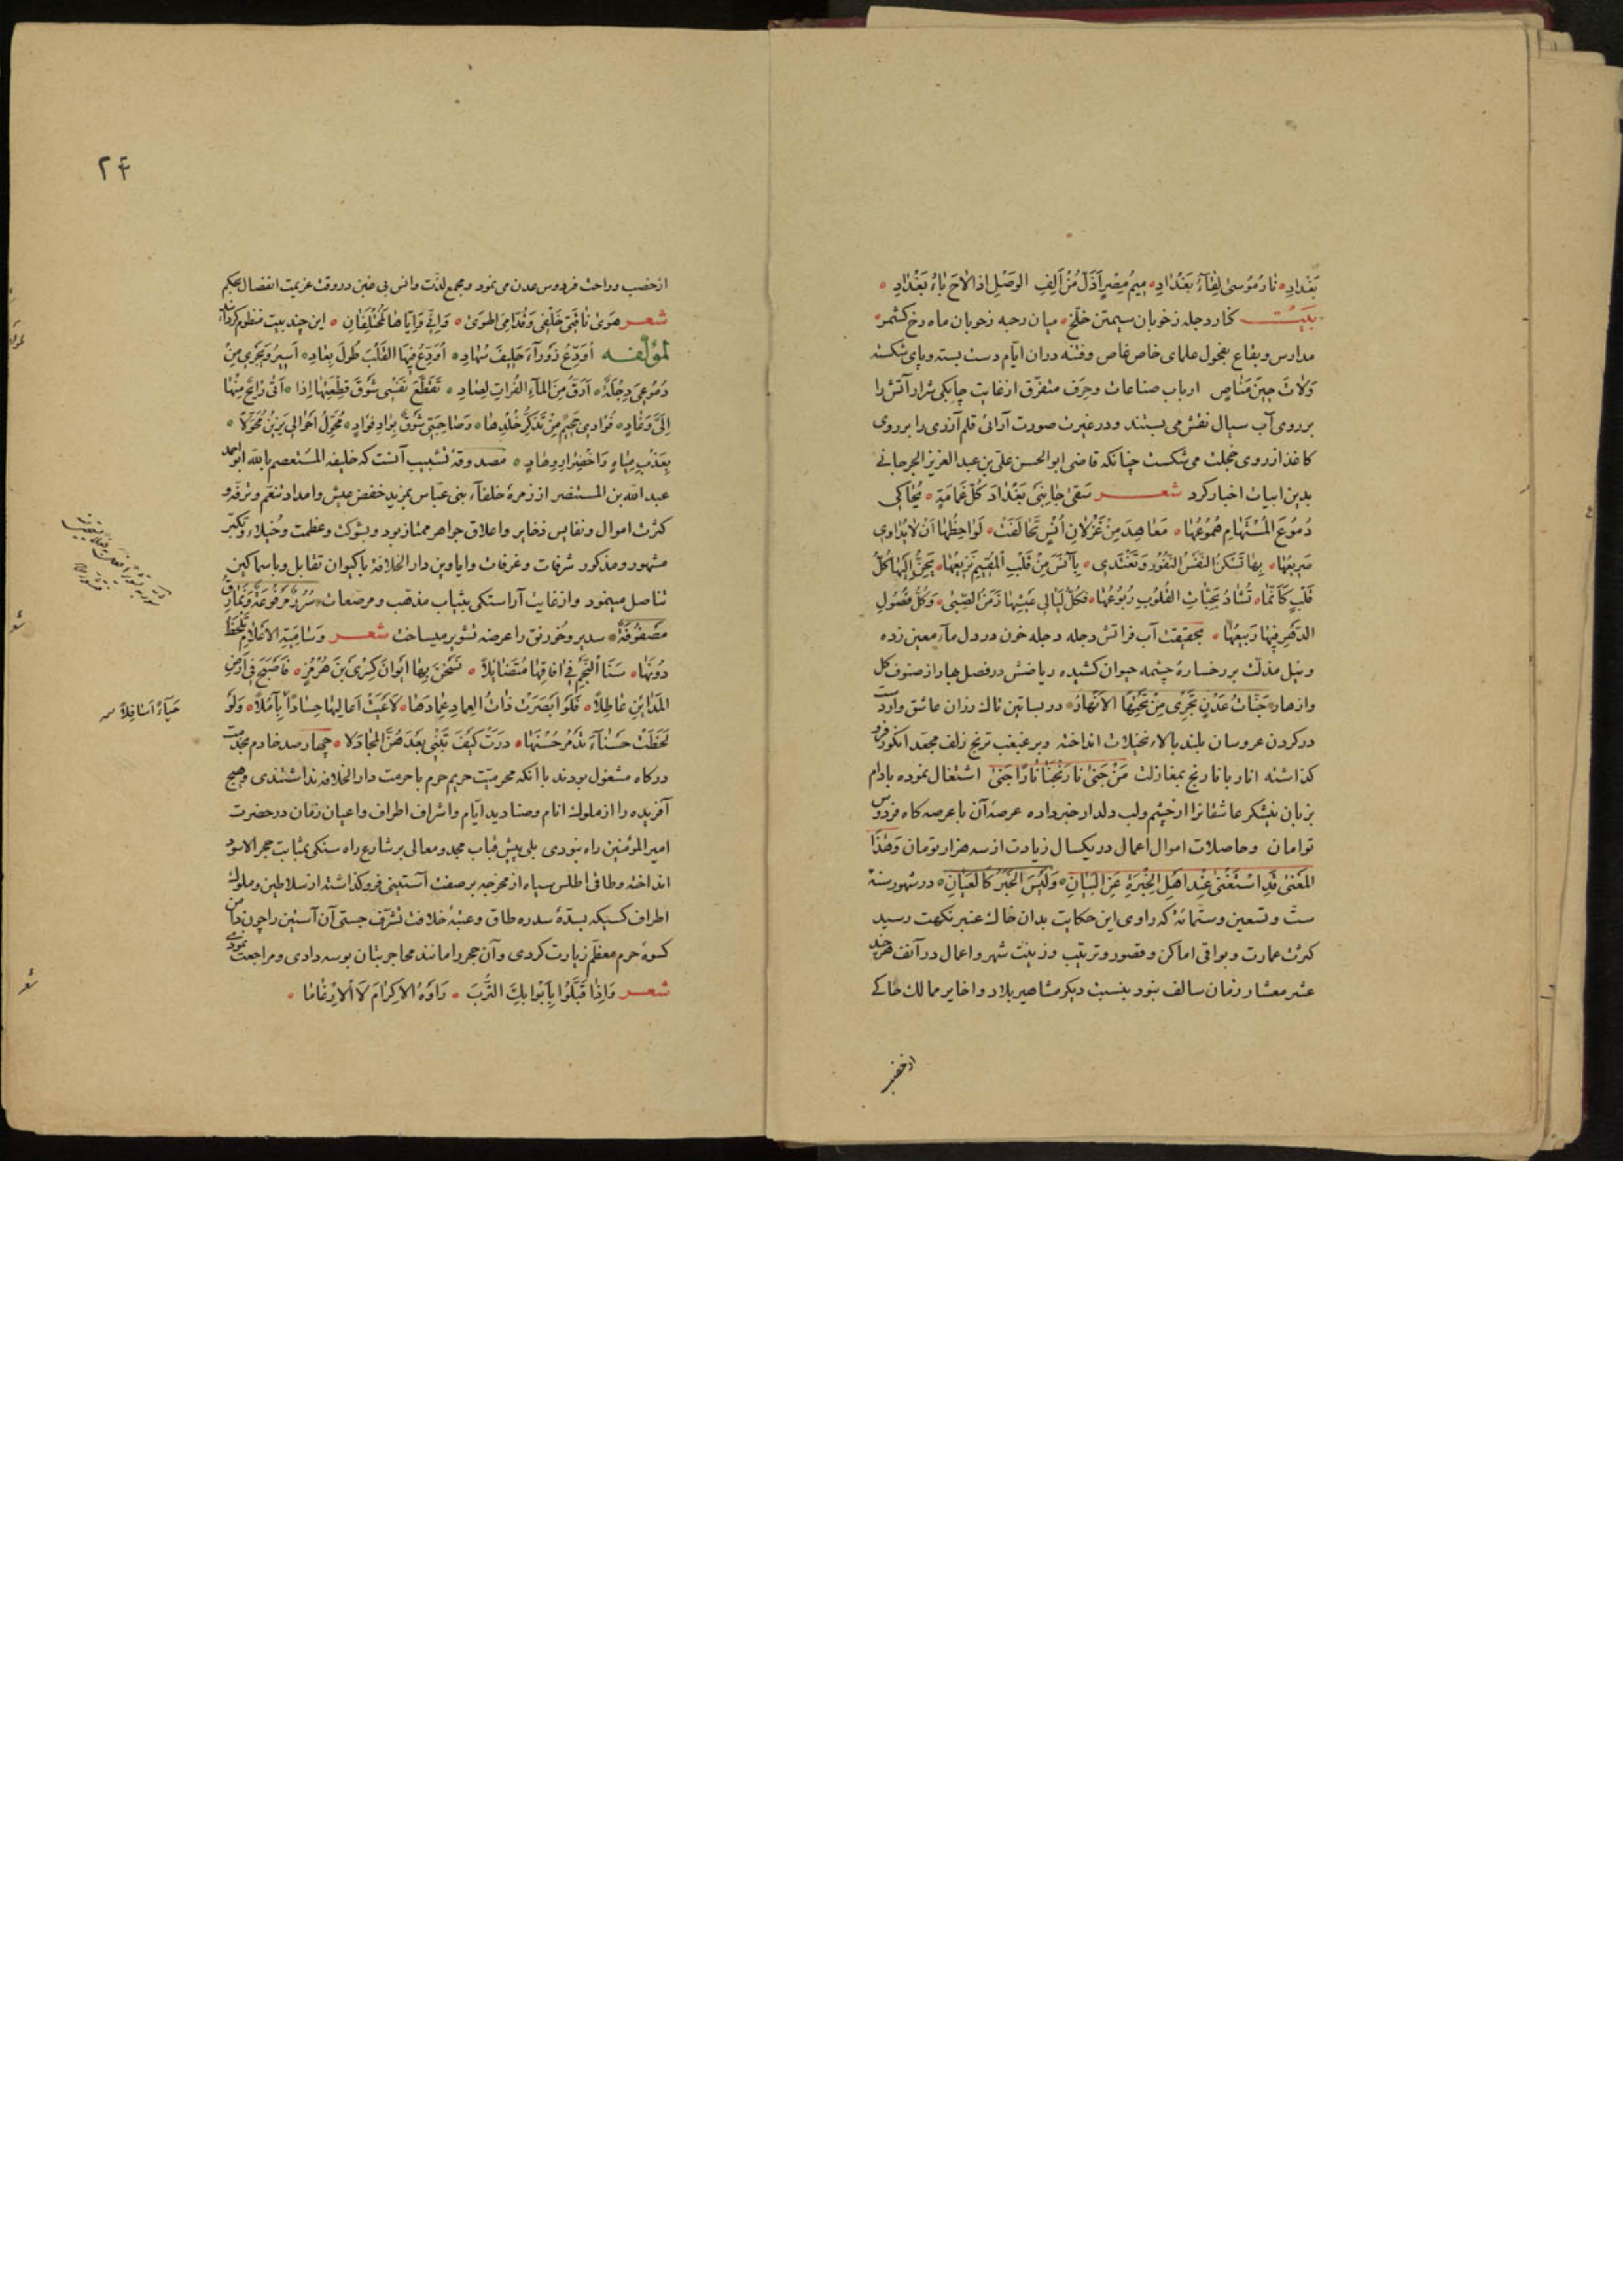 بَغْدادِ نارُ مُوسىٰ لِقآءُ بَغْدادِ مِيمُ مِصْرٍ اَذَلُّ مِنْ اَلِفِ الوَصْلِ اِذا لاحَ باءُ بَغْدادِ
بيت كنار دجله ز خوبان سيمتن خلخ ميان رحبه ز خوبان ماه رخ كشمر
مدارس وبقاع بفحول علماى خاص غاص وفتنه دران ايام دست بسته وپاى شكسته
وَلاتَ حينَ مَناصٍ ارباب صناعات وحِرَف متفرّق از غايت چابكى شرار آتش را
بر روى آب سيال نقش مى بستند ودر غيرت صورت آرائى قلم آزرى را بر روى
كاغذ از روى خجلت مى شكست چنانكه قاضى ابو الحسن على بن عبد العزيز الجرجانى
بدين ابيات اخبار كرد شعر سَقىٰ جانِبَىْ بَغْدادَ كُلُّ غَمامَةٍ يُحاكى
دُمُوعَ المُسْتَهامِ هُمُوعُها مَعاهِدَ مِنْ غَزْلانِ اُنْسٍ تَحالَفَتْ لَواحِظُها اَنْ لا يُداوى
صَريعُها بِها تَسْكُنُ النَّفْسُ النَّفُورُ وَتَغْتَدى بِآنَسَ مِنْ قَلْبِ المُقيمِ نَزيعُها يَحِنُّ اِلَيْها كُلُّ
قَلْبٍ كَاَنَّما تُشادُ بِحَبّاتِ القُلُوبِ رُبُوعُها فَكُلُّ لَيالى عَيْشِها زَمَنُ الصِّبىٰ وَكُلُّ فُصُولِ
الدَّهْرِ فيها رَبيعُها بحقيقت آب فراتش دجله دجله خون در دل مآء معين زده
ونيل مذلت بر رخساره چشمه حيوان كشيده رياضش در فصل بهار از صنوف كل
وازهار جَنّاتُ عَدْنٍ تَجْرى مِنْ تَحْتِهَا الاَنْهارُ در بساتين تاك رزان عاشق وار دست
در كردن عروسان بلند بالاء نخيلات انداخته وبر غبغب ترنج زلف مجعّد انكور فرو
كذاشته انار با نارنج بمغازلت مَنْ جَنىٰ نارَنْجَنا ناراً جَنىٰ اشتغال نموده بادام
بزبان نيشكر عاشقانرا از چشم ولب دلدار خبر داده عرصهٔ آن با عرصه كاه فردوس
توامان وحاصلات اموال اعمال در يكسال زيادت از سه هزار تومان وَهٰذَا
المَعْنىٰ قَدِ اسْتَغْنىٰ عِنْدَ اَهْلِ الخِبْرَةِ عَنِ البَيانِ وَلَيْسَ الخَبَرُ كَالعَيانِ در شهور سنهٔ
ستّ وتسعين وستمائة كه راوى اين حكايت بدان خاك عنبر نكهت رسيد
كثرت عمارت وبواقى اماكن وقصور وترتيب وزينت شهر واعمال در آنف هر چند
عشر معشار زمان سالف نبود بنسبت ديكر مشاهير بلاد واخاير ممالك حاكى
از خصب
٢۴
از خصب وراحت فردوس عدن مى نمود ومجمع لذّت وانس بى غبن در وقت عزيمت انفصال بحكم
شعر هَوىٰ ناقَتى خَلْفى وَقُدّامِىَ الهَوىٰ وَاِنّى وَاِيّاها لَمُخْتَلِفانِ اين چند بيت منظوم كردانيد
لمؤلّفه اُوَدِّعُ زَوْرآءَ حَليفَ سُهادِ اُوَدِّعُ فيهَا القَلْبَ طُولَ بِعادِ اَسيرُ وَيَجْرى مِنْ
دُمُوعى دِجْلَةٌ اَرَقُّ مِنَ المآءِ الفُراتِ لِصادِ تَقَطَّعَ نَفْسى شَوْقَ قِطْعَيْها اِذا اَتىٰ رائِحٌ مِنْها
اِلَىَّ وَغادِ فُؤادى جَحيمٌ مِنْ تَذَكُّرِ خُلْدِها وَصاحَبَنى شَوْقٌ بِوادِ فُؤادِ مُحَوِّلُ اَحْوالى
بِعَذْبِ مِياهٍ وَاخْضِرارِ وِهادِ مصدوقهٔ تشبيب آنست كه خليفه المستعصم بالله ابو احمد
عبد الله بن المستنصر از زمرهٔ خلفآء بنى عبّاس بمزيد خفض عيش وامداد تنعّم وترفّه و
كثرت اموال ونفايس ذخاير واعلاق جواهر ممتاز بود وبشوكت وعظمت وخيلاء وتكبّر
مشهور ومذكور شرفات وغرفات واياوين دار الخلافه با كيوان تقابل وبا سماكين
تناضل مينمود واز غايت آراستكى بثياب مذهب ومرصعات سُرُرٌ مَرْفُوعَةٌ وَنَمارِقُ
مَصْفُوفَةٌ سدير وخورنق را عرضه تشوير ميساخت شعر وَسامِيَةِ الاَعْلامِ تَلْحَظُ
دُونَها سَنَا النَّجْمِ فى آفاقِها مُتَضائِلاً نَسَخْنَ بِها ايوانَ كِسْرىٰ بْنَ هُرْمُزٍ فَاَصْبَحَ فى اَرْضِ
المَدائِنِ عاطِلاً فَلَوْ اَبْصَرَتْ ذاتُ العِمادِ عِمادَها لَاَعْيَتْ اَعاليها حِساداً بِآمُلاً وَلَوْ
لَحَظَتْ حَسْنآءَ تَدْمُرَ حُسْنَها دَرَتْ كَيْفَ تُبْنىٰ بَعْدَهُنَّ المَجادِلا چهار صد خادم بخدمت
دركاه مشغول بودند با آنكه محرميّت حريم حرم با حرمت دار الخلافه نداشتندى وهيچ
آفريده را از ملوك انام وصناديد ايّام واشراف اطراف واعيان زمان در حضرت
امير المؤمنين راه نبودى بلى پيش قباب مجد ومعالى بر شارع راه سنكى بمثابت حجر الاسود
انداخته وطاقى اطلس سياه از مخرجه بر صفت آستينى فرو كذاشته از سلاطين وملوك
اطراف كسيكه بسدّهٔ سدره طاق وعتبهٔ خلافت تشرّف جستى آن آستين را چون دامن
كسوهٔ حرم معظّم زيارت كردى وآن حجر را مانند محاجر بتان بوسه دادى ومراجعت نمودى
شعر وَاِذا قَبَّلُوا بِاَبْوابِكَ التُّرْبَ رَاَوْهُ الاِكْرامَ لاَ الاِرْغاما
حَيآءً اَسافِلاً